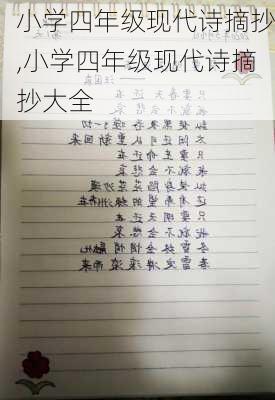 小学四年级现代诗摘抄
,小学四年级现代诗摘
抄大全
汪国真
只要春天还在
我就不会悲哀
纵使黑夜吞噬了一切
太阳还可以重新回来
只要生命还在
我就不会悲哀
纵使身陷茫茫沙漠
还有希望的绿洲存在
只要明天还在
我就不会悲哀
冬雪终会悄悄融化
春雷定将滚滚而来